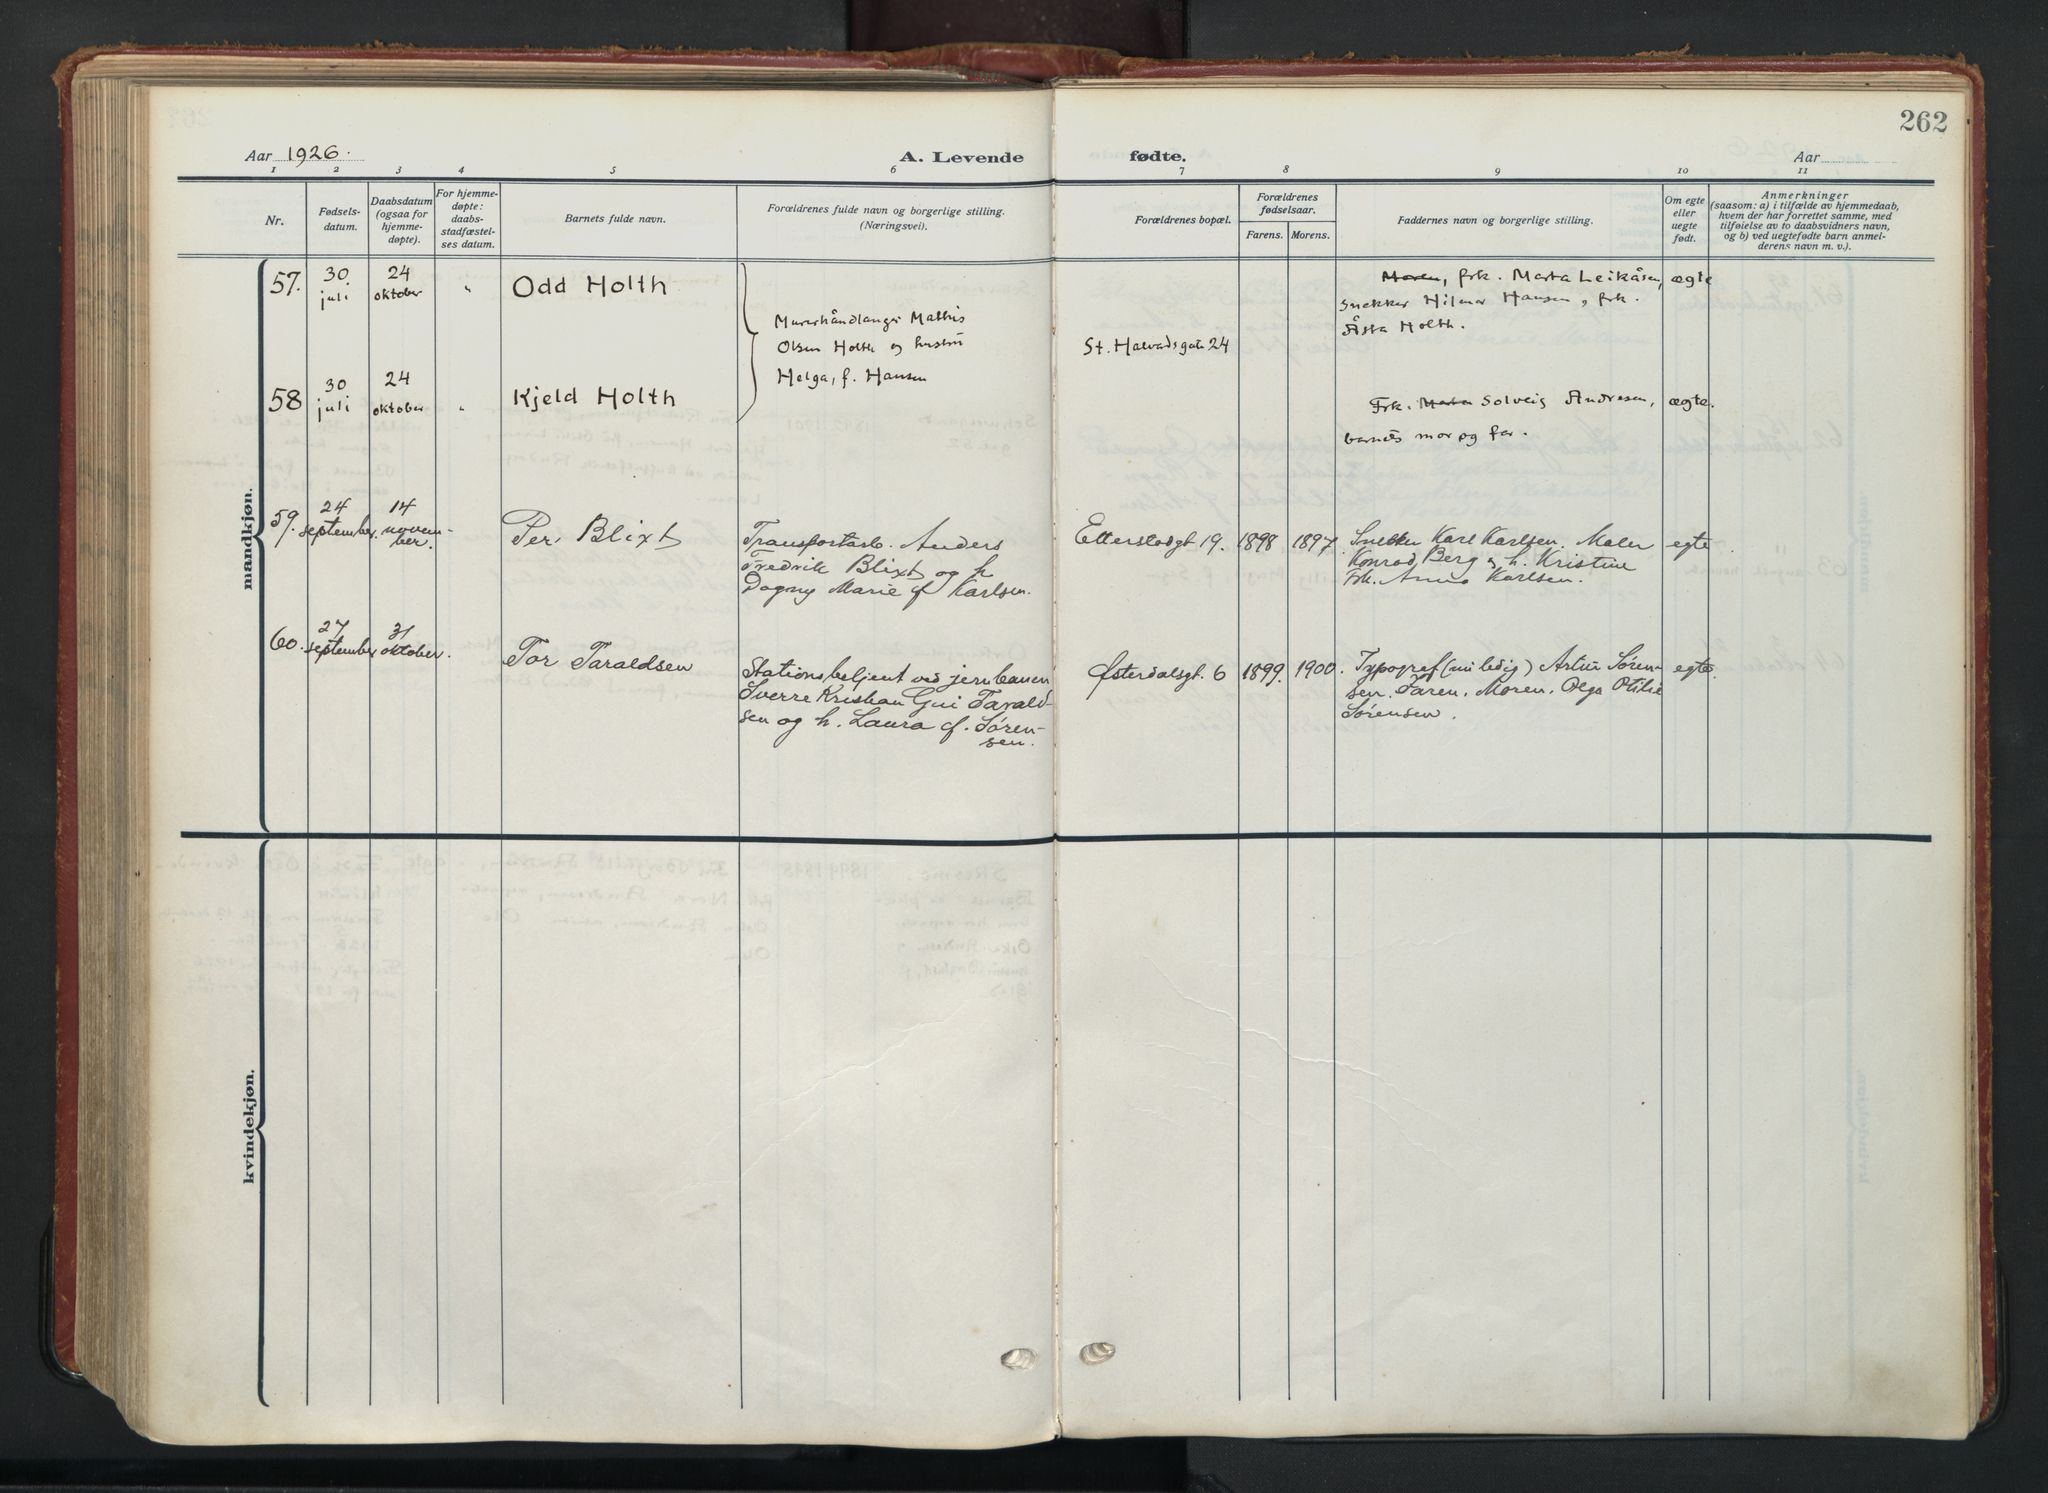 262
Aar 1926.
A. Levende
fødte.
Aar
1 2 3 4 5 6 7 8 9 10 11
Nr.
Fødsels-
datum.
Daabsdatum
(ogsaa for
hjemme-
døpte).
For hjemme-
døpte:
daabs-
stadfæstel-
ses datum.
Barnets fulde navn.
Forældrenes fulde navn og borgerlige stilling.
(Næringsvei).
Forældrenes bopæl.
Forældrenes
fødselsaar.
Farens. Morens.
Faddernes navn og borgerlige stilling.
Om egte
eller
uegte
født.
Anmerkninger
(saasom: a) i tilfælde av hjemmedaab,
hvem der har forrettet samme, med
tilføielse av to daabsvidners navn,
og b) ved uegtefødte barn anmel-
derens navn m. v.).
mandkjøn.
57.
30
juli
24
oktober
"
Odd Holth
Murerhåndlanger Mathis
Olsen Holth og hustru
Helga, f. Hansen
St. Halvardsgate 24
Moren, frk. Marta Leikåsen,
snekker Hilmar Hansen, frk.
Åsta Holth.
ægte
58
30
juli
24
oktober
"
Kjeld Holth
Frk. Marta Solveig Andresen,
barnets mor og far.
ægte.
59.
24
september.
14
novem-
ber.
Per Blixt
Transportarb. Anders
Fredrik Blixt og h
Dagny Marie f Karlsen.
Etterstadgt 19.
1898
1897
Snekker Karl Karlsen. Maler
Konrad Berg og h. Kristine
Frk. Anna Karlsen.
egte
60.
27
september
31
oktober.
Tor Taraldsen
Stationsbetjent ved jernbanen
Sverre Kristian Gui Tarald-
sen og h. Laura f. Søren-
sen.
Østerdalsgt. 6
1899.
1900.
Typograf (nu ledig) Artur Søren-
sen. Faren. Moren. Olga Otilie
Sørensen.
egte.
kvindekjøn.